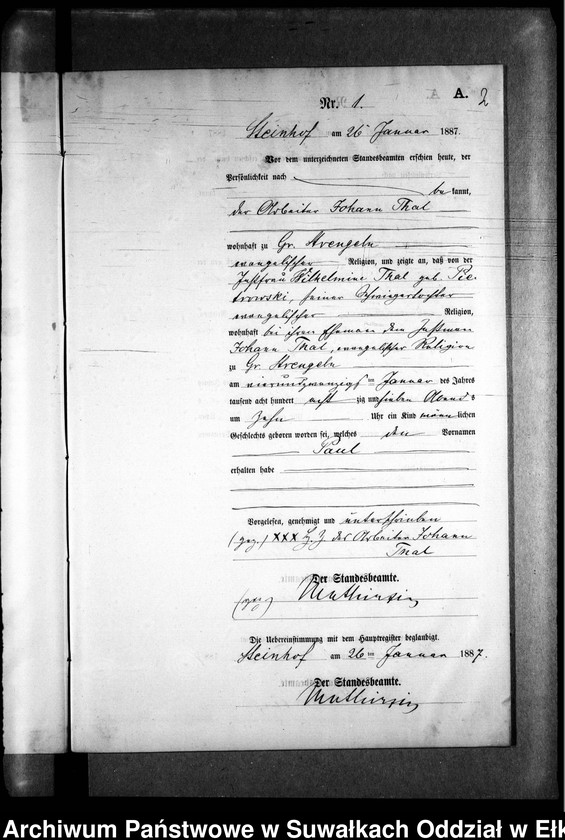 A. 2
Nr. 1.
Steinhof am 26 Januar 1887.
Vor dem unterzeichneten Standesbeamten erschien heute, der
Persönlichkeit nach
be kannt,
der Arbeiter Johann Thal
wohnhaft zu Gr. Strengeln
evangelischer Religion, und zeigte an, daß von der
Instfrau Wilhelmine Thal geb. Pie-
trowski, seiner Schwiegertochter
evangelischer Religion,
wohnhaft bei ihrem Ehemann dem Instmann
Johann Thal, evangelischer Religion
zu Gr. Strengeln
am vierundzwanzigs ten Januar des Jahres
tausend acht hundert acht zig und sieben Abends
um zehn Uhr ein Kind männ lichen
Geschlechts geboren worden sei, welches den Vornamen
Paul
erhalten habe
Vorgelesen, genehmigt und unterschrieben
(gez.) XXX H. Z. des Arbeiter Johann
Thal
Der Standesbeamte.
(gez)
Die Uebereinstimmung mit dem Hauptregister beglaubigt.
Steinhof am 26ten Januar 1887.
Der Standesbeamte.
Archiwum Państwowe w Suwałkach Oddział w Ełk